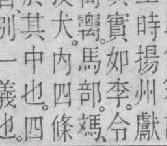 時揚州獻
實如李。令
馬部。
犬。內四條
其中也。四
別一義也。